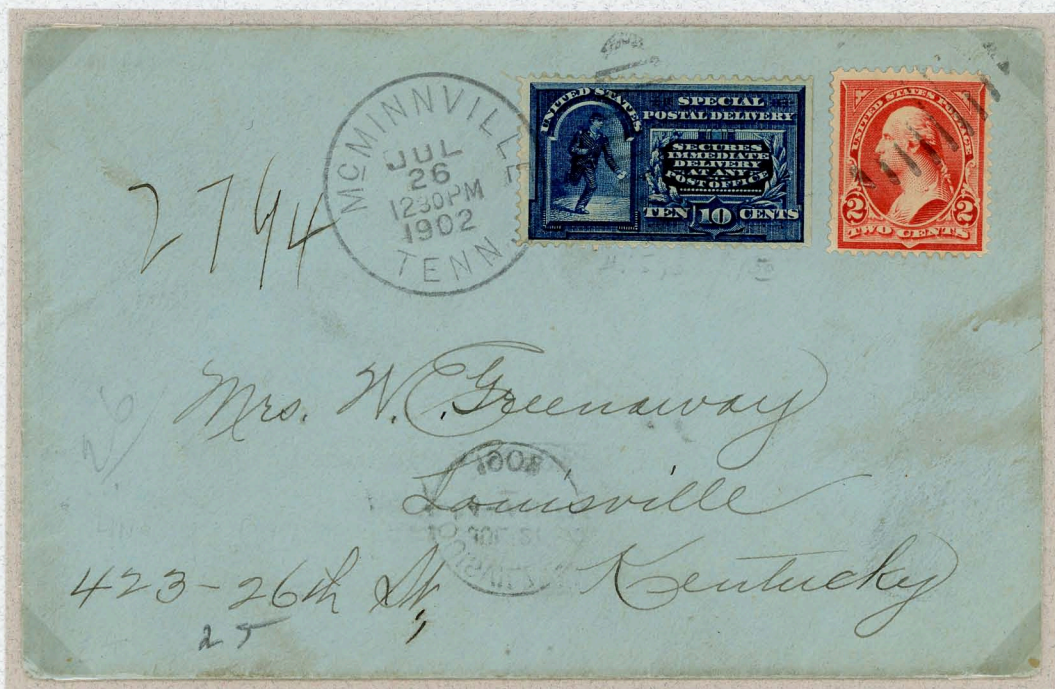 McMINNVILLE
JUL
26
1230PM
1902
TENN.
UNITED STATES
SPECIAL
POSTAL DELIVERY
SECURES
IMMEDIATE
DELIVERY
AT ANY
POST OFFICE
TEN 10 CENTS
UNITED STATES POSTAGE
2 2
TWO CENTS
2794
Mrs. W. Greenaway
Louisville
Kentucky
423-26th St,
25
26